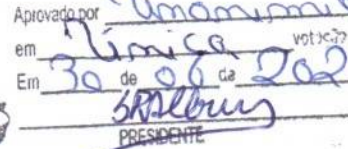 Aprovado por Unanimi
em Única votação
Em 30 de 06 da 202
PRESIDENTE